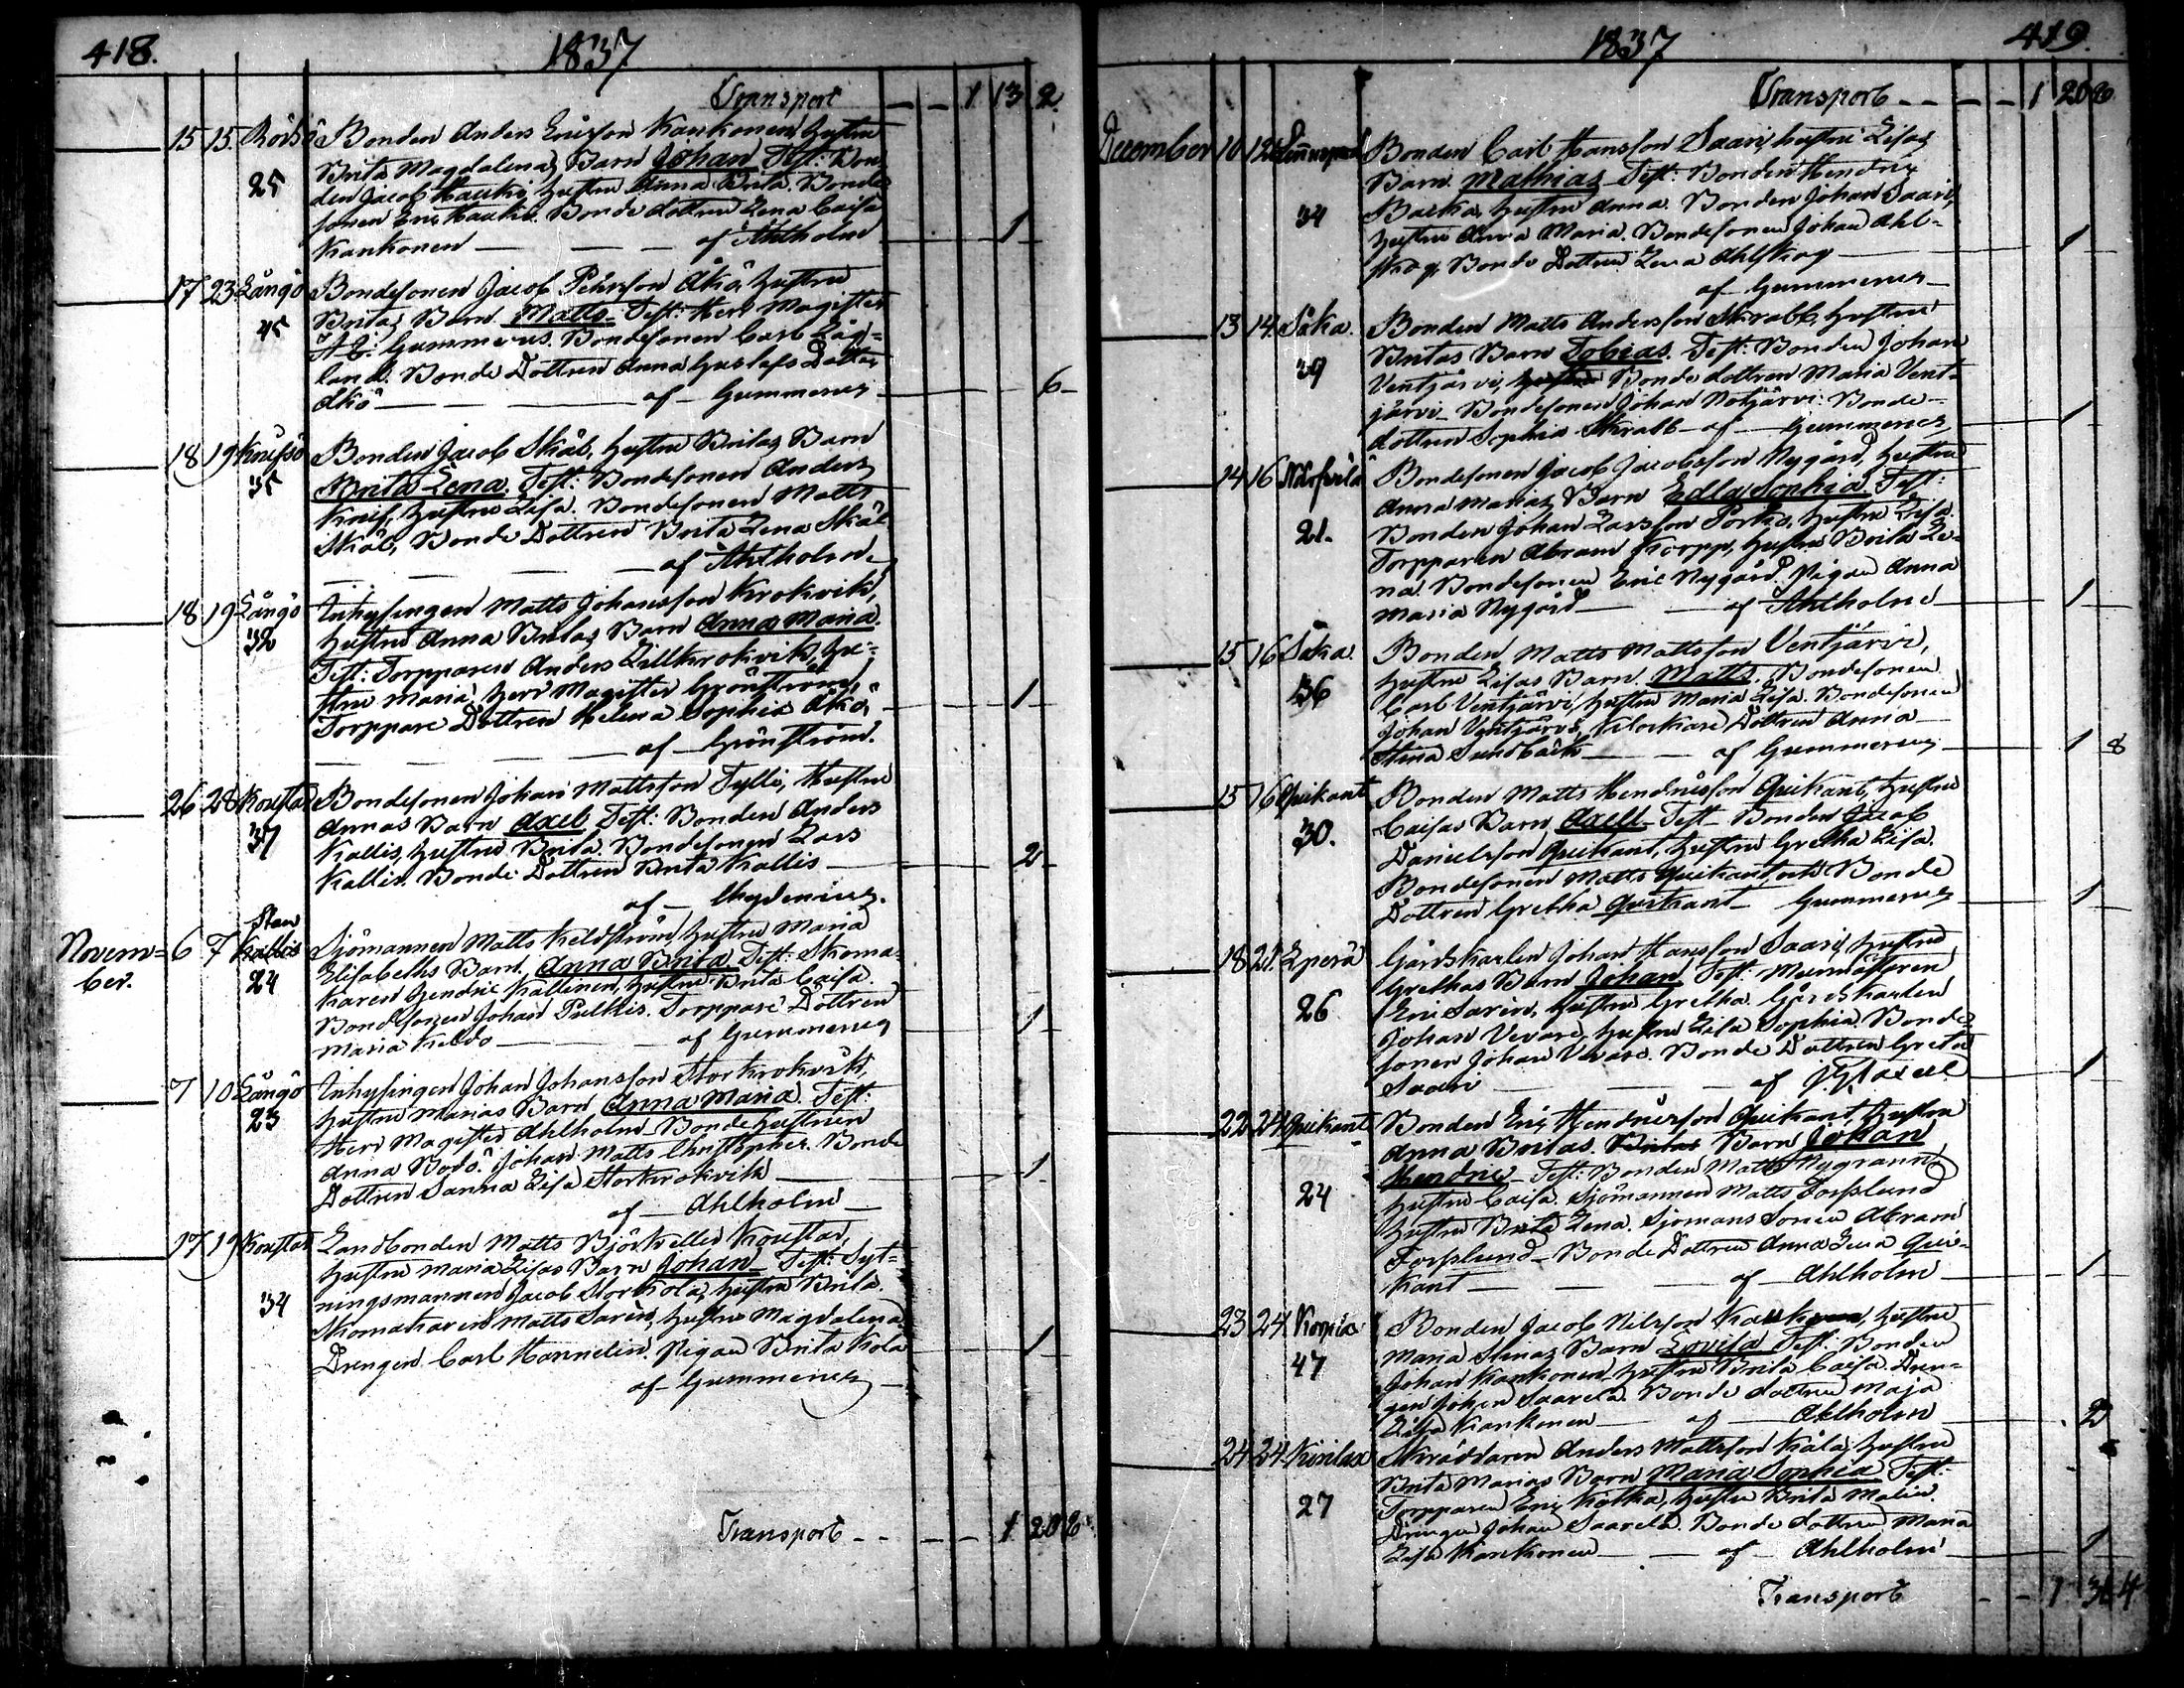 418.
1837
Transport — — 1 13 2.
15 15. Rödsö Bonden Anders Ericsson Kankonen, hustru
Brita Magdalenas Barn Johan Test: Bon-
25 den Jacob Hautki, hustru Anna Brita. Bonde
sonen Eric Hautki. Bonde dottren Lena Caisa
Kankonen — — — af Ahlholm — 1
17 23 Långö Bondesonen Jacob Pehrsson Åkö, hustru
Britas Barn Matts Test: Herr Magister
45 Gummerus. Bondesonen Carl Låg-
land. Bonde Dottren Anna Gustafs Dotter
Åkö — — — af Gummerus — 6
18 19 Knifsö Bonden Jacob Skåt, hustru Britas Barn
35 Brita Lena. Test: Bondesonen Anders
Knif, hustru Lisa. Bondesonen Matts
Skåt, Bonde Dottren Brita Lena Skåt
— — — af Ahlholm
18 19 Långö Inhysingen Matts Johansson Krokvik,
32 hustru Anna Britas Barn Anna Maria.
Test: Torpparen Anders Lillkrokvik, hu-
stru Maria, Herr Magister Grönström,
Torppare Dottren Helena Sophia Åkö — 1
— — — af Grönström.
26 28 Korplax Bondesonen Johan Mattsson Tylli, Hustru
Annas Barn Axel Test: Bonden Anders
37 Kallis, hustru Brita. Bondesonen Lars
Kallis. Bonde Dottren Brita Kallis — 2
af Chydenius.
Novem-
ber.
6 7 Stor
Kallis Sjömannen Matts Keldström, hustru Maria
24 Elisabeths Barn, Anna Brita Test: Skoma-
karen Hendric Kallinen, hustru Brita Caisa.
Bondesonen Johan Pulkis. Torppare Dottren
Maria Keldo — — af Gummerus — 1
7 10 Långö Inhysingen Johan Johansson Storkrokvik,
23 hustru Marias Barn Anna Maria. Test:
Herr Magister Ahlholm. Bondehustrun
Anna Bodö. Johan Matts Christopher. Bonde
Dottren Sanna Lisa Storkrokvik — 1
af Ahlholm
17 19 Landbonden Matts Björkelle
hustru Maria Lisas Barn Johan Test: Syt-
34 ningsmannen Jacob Storkola, hustru Brita.
Skomakaren Matts Sarin, hustru Magdalena
Drengen Carl Hannelin. Pigan Brita Kola — 1
af Gummerus
Transport — — 1 20 8
1837
419.
Transport — — — 1 20 8
December 10 12 Bonden Carl Hansson Saari, hustru Lisas
Barn Mathias Test: Bonden Hendric
34 Backa, hustru Anna. Bonden Johan Saari,
hustru Anna Maria. Bondesonen Johan Ahl-
skog. Bonde Dottren Lena Ahlskog — 1
af Gummerus
13 14. Såka. Bonden Matts Andersson Skrabb, hustru
Britas Barn Tobias. Test: Bonden Johan
39 Ventjärvi, Bonde dottren Maria Vent-
järvi. Bondesonen Johan Notjärvi. Bonde-
dottren Sophia Skrabb af Gummerus — 1
14 16 Bondesonen Jacob Jacobsson Nygård, hustru
Anna Marias Barn Edla Sophia. Test:
21. Bonden Johan Larsson Porko, hustru Lisa.
Torpparen Abram Korpp, hustru Brita Le-
na. Bondesonen Eric Nygård. Pigan Anna
Maria Nygård — — af Ahlholm — 1
15 16 Såka. Bonden Matts Mattsson Ventjärvi,
hustru Lisas Barn. Matts. Bondesonen
36 Carl Ventjärvi, hustru Maria Lisa. Bondesonen
Johan Ventjärvi, Klockare Dottren Anna
Stina Sundbäck — — af Gummerus — 1 8
15 16 Quikant Bonden Matts Hendricsson Quikant, hustru
Caisas Barn, Axel Test Bonden Jacob
30. Danielsson Quikant, hustru Gretha Lisa.
Bondesonen Matts Quikant, och Bonde
Dottren Gretha Quikant Gummerus — 1
18 21. Eperå Gårdskarlen Johan Hansson Saari, hustru
Grethas Barn Johan Test: Murmästaren
26 Eric Sarin, hustru Gretha. Gårdskarlen
Johan Verare, hustru Lisa Sophia. Bonde
sonen Johan Verare. Bonde Dottren Greta
Saari — — af — 1
22 24 Quikant Bonden Eric Hendricsson Quikant, hustru
Anna Britas. Britas Barn Johan
Hendric. Test: Bonden Matts Nygrann,
24 hustru Caisa. Sjömannen Matts Forsslund
hustru Brita Lena. Sjömans Sonen Abram
Forsslund. Bonde Dottren Anna Lena Qui-
kant — — af Ahlholm — 1
23 24 Korpilax Bonden Jacob Nilsson Kankonen, hustru
Maria Stinas Barn Lovisa Test: Bonden
47 Johan Kankonen, hustru Brita Caisa. Dren-
gen Johan Saarela. Bonde dottren Maja
Lisa Kankonen — af Ahlholm — 2
24 24 Kirilax Skräddaren Anders Mattsson Kåla, hustru
Brita Marias Barn Maria Sophia Test:
27 Torpparen Eric Kotka, hustru Brita Malin.
Drengen Johan Saarela. Bonde dottren Maria
Lisa Kankonen — — af Ahlholm — 1
Transport — — 1 36 4